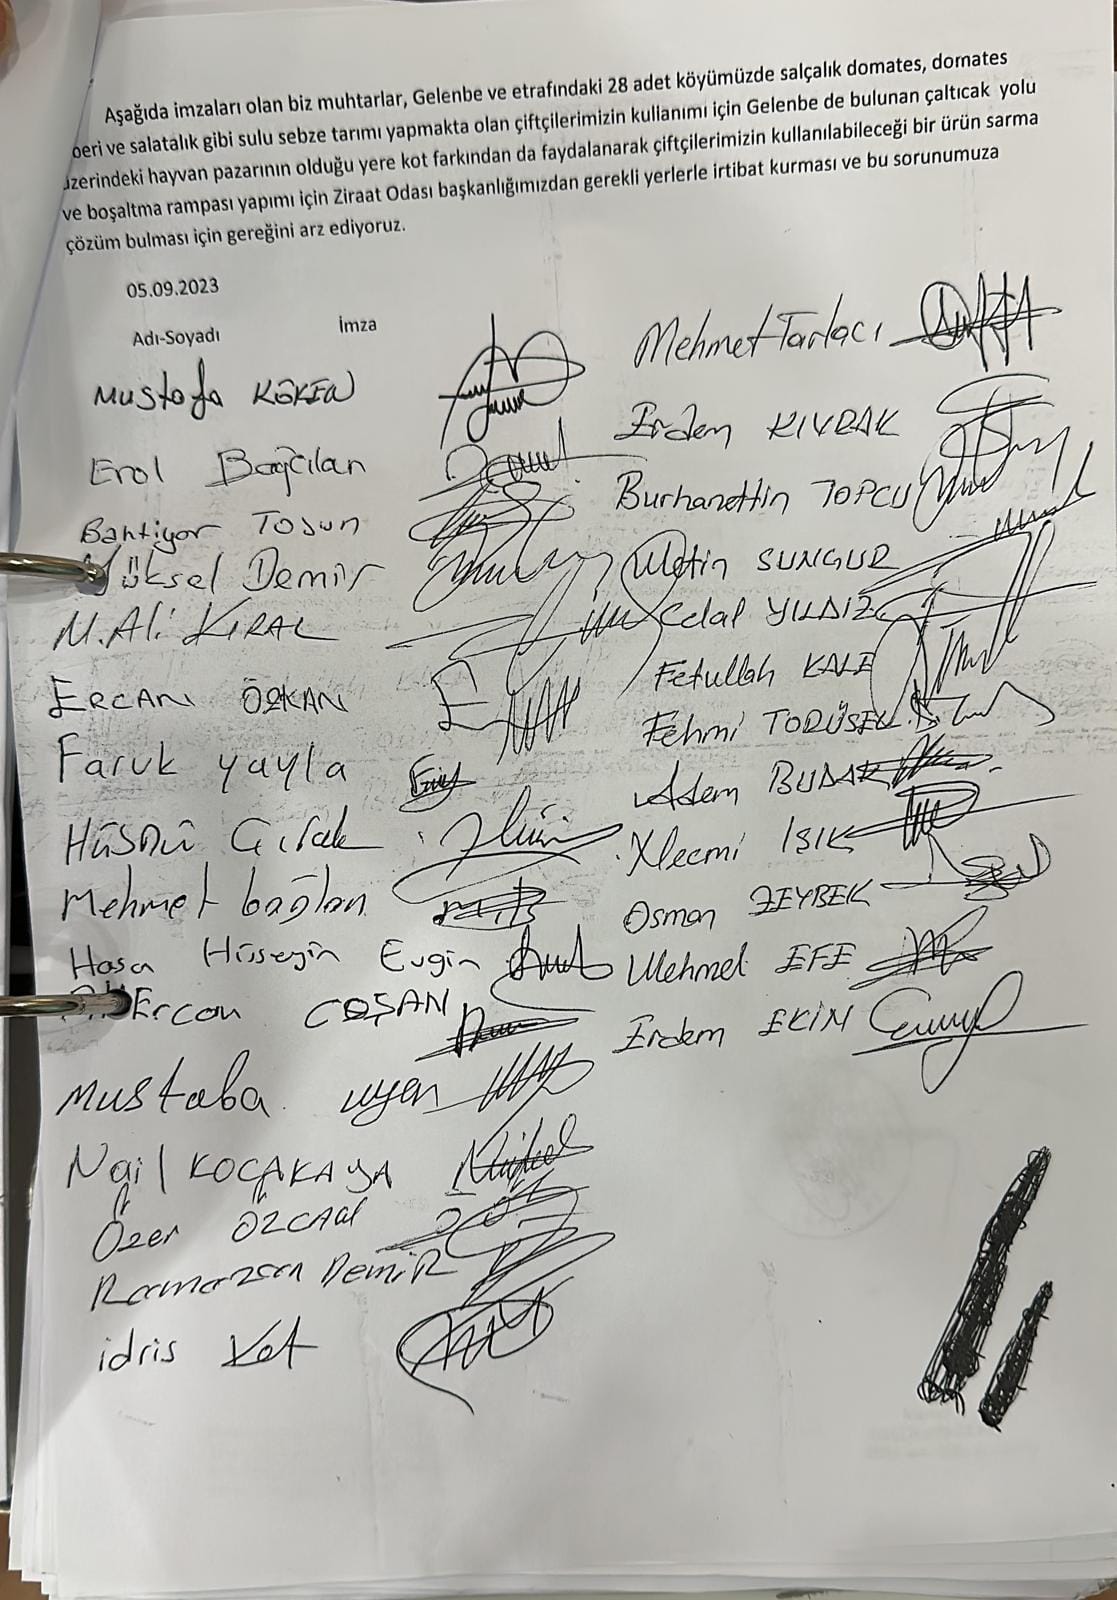 Aşağıda imzaları olan biz muhtarlar, Gelenbe ve etrafındaki 28 adet köyümüzde salçalık domates, domates
beri ve salatalık gibi sulu sebze tarımı yapmakta olan çiftçilerimizin kullanımı için Gelenbe de bulunan çaltıcak yolu
üzerindeki hayvan pazarının olduğu yere kot farkından da faydalanarak çiftçilerimizin kullanılabileceği bir ürün sarma
ve boşaltma rampası yapımı için Ziraat Odası başkanlığımızdan gerekli yerlerle irtibat kurması ve bu sorunumuza
çözüm bulması için gereğini arz ediyoruz.
05.09.2023
Adı-Soyadı İmza
Mustafa KÖKEN
Erol Bağcılan
Bahtiyar Tosun
Yüksel Demir
M.Ali KIRAL
ERCAN ÖZKAN
Faruk yayla
Hüsnü Çırak
Mehmet bağlan
Hasan Hüseyin Evgin
Ercan COŞAN
Mustaba uyen
Nail KOÇAKAYA
Özer ÖZCAN
Ramazan DemiR
idris Kot
Mehmet Tarlacı
Erdem KIVRAK
Burhanettin TOPCU
Metin SUNGUR
Celal YILDIZ
Fetullah KALE
Fehmi TORÜSEL
Adem BUDAK
Necmi IŞIK
Osman ZEYBEK
Mehmet EFE
Erdem EKİN